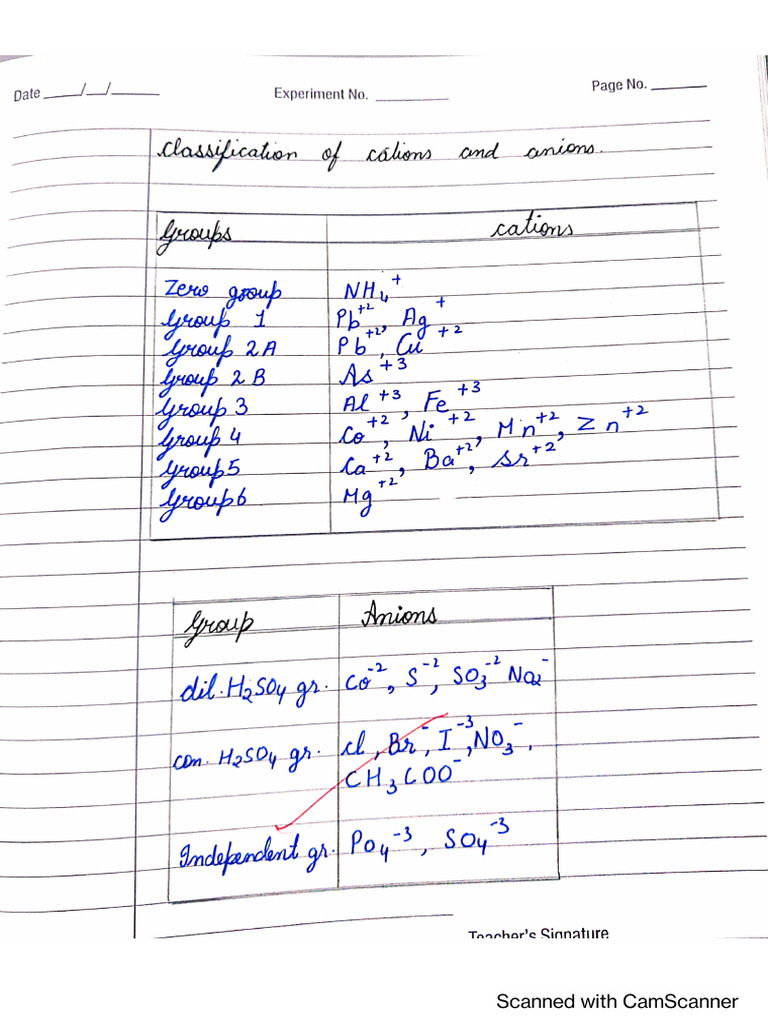 Date ___/__/____ Experiment No. ________ Page No. ______
Classification of cations and anions.
Groups cations
Zero group NH₄⁺
Group 1 Pb⁺², Ag⁺
Group 2A Pb⁺², Cu⁺²
Group 2B As⁺³
Group 3 Al⁺³, Fe⁺³
Group 4 Co⁺², Ni⁺², Mn⁺², Zn⁺²
Group 5 Ca⁺², Ba⁺², Sr⁺²
Group 6 Mg⁺²
Group Anions
dil. H₂SO₄ gr. Co⁻², S⁻², SO₃⁻² NO₂⁻
con. H₂SO₄ gr. cl, Br⁻, I⁻³, NO₃⁻,
CH₃COO⁻
Independent gr. Po₄⁻³, SO₄⁻³
Teacher's Signature
Scanned with CamScanner